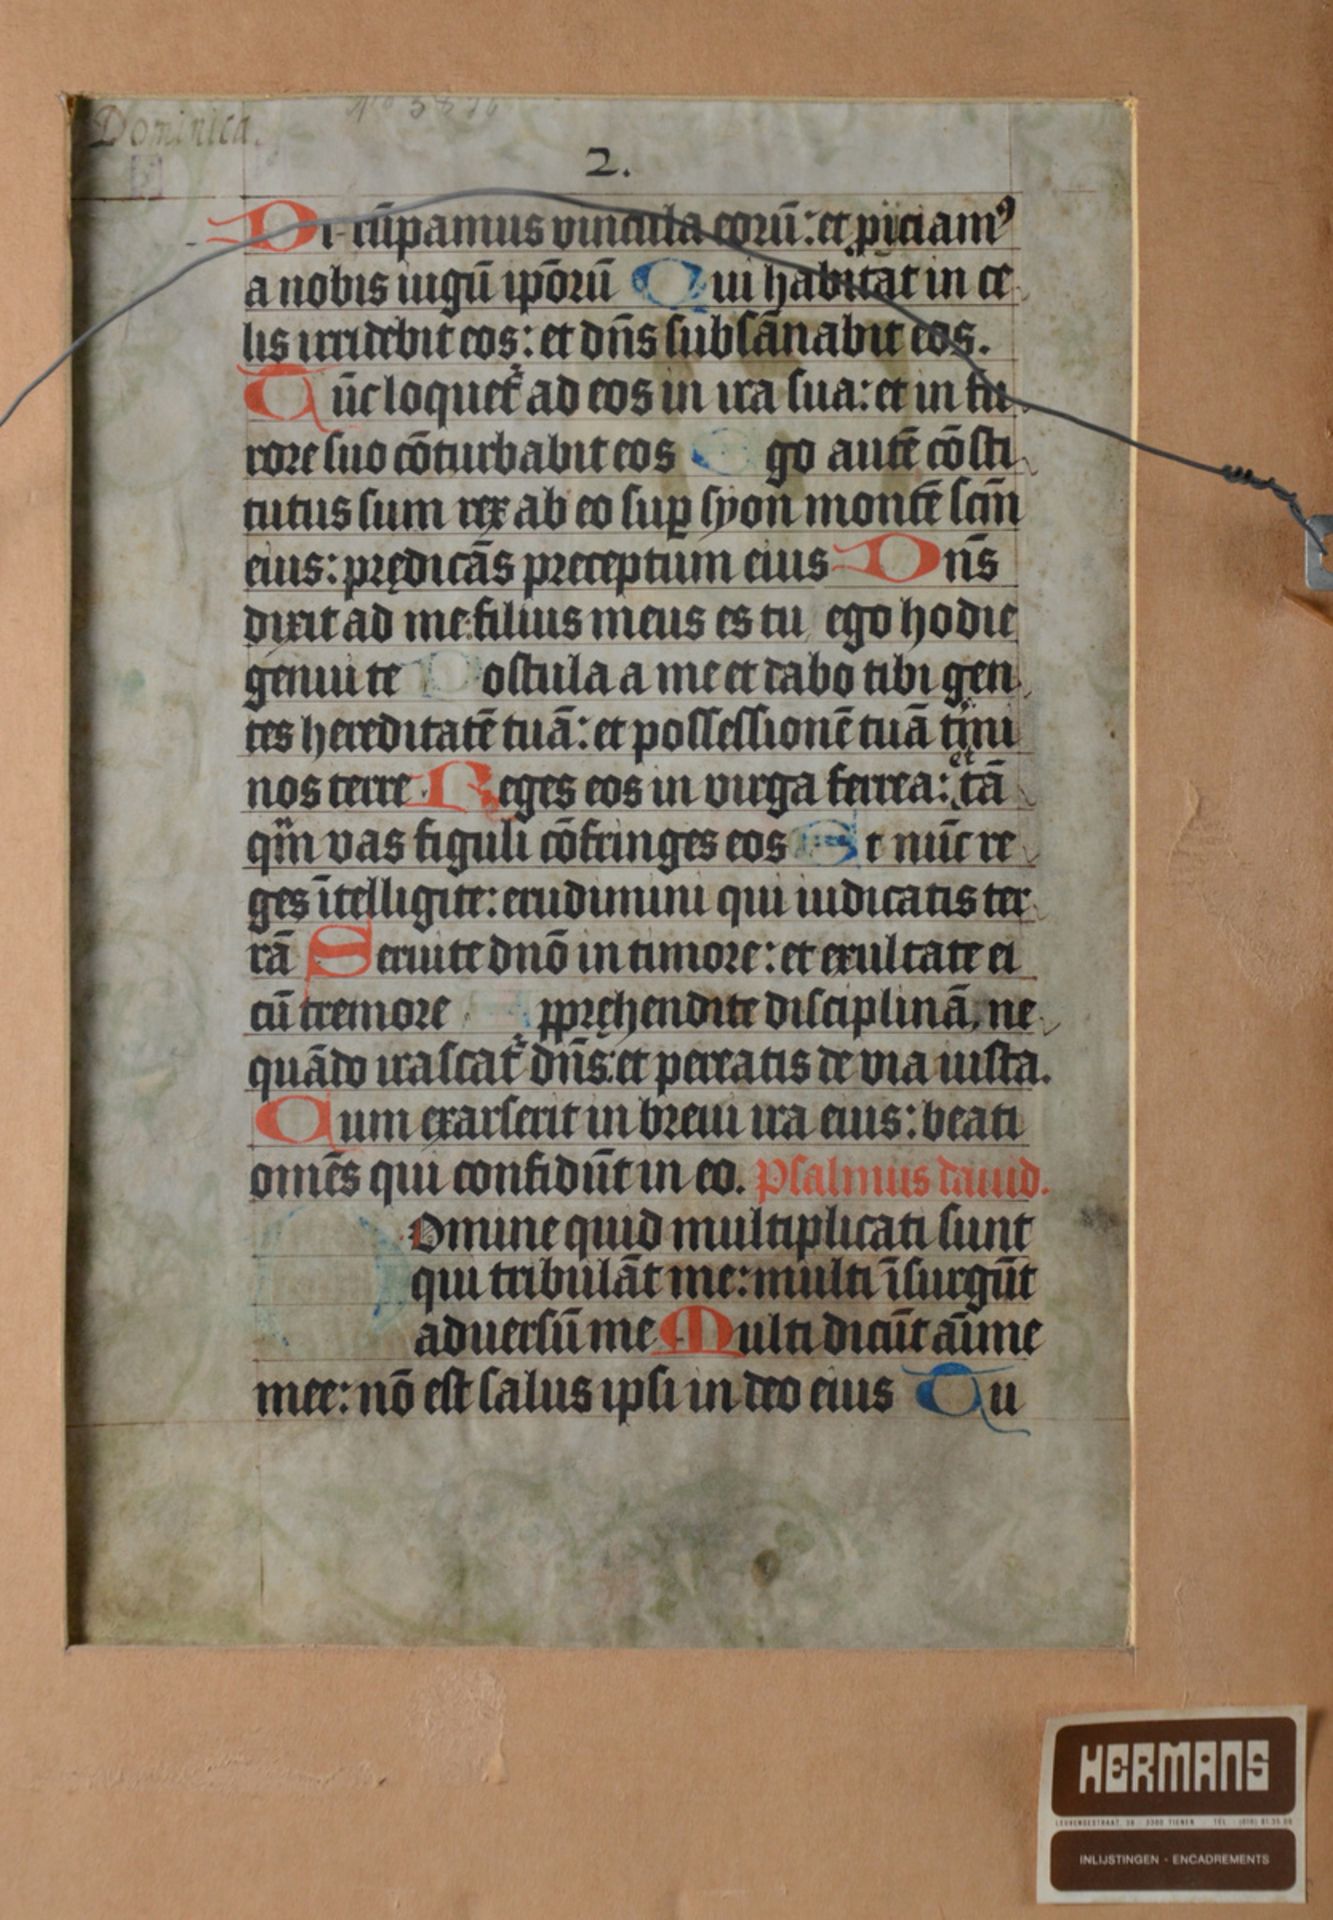 Dominica.
2.
Dirrũpamus vincula eorũ: et ꝓijciamꝰ
a nobis iugũ ip̃orũ Qui habitat in ce
lis irridebit eos: et dñs subsãnabit eos.
Tũc loquet᷑ ad eos in ira sua: et in fu
rore suo cõturbabit eos Ego autẽ cõsti
tutus sum rex ab eo sup̱ syon montẽ scm̃
eius: prędicãs preceptum eius Dñs
dixit ad me: filius meus es tu, ego hodie
genui te Postula a me et dabo tibi gen
tes hereditatẽ tuã: et possessionẽ tuã t̃mi
nos terre Reges eos in virga ferrea: et tã
qm̃ vas figuli cõfringes eos Et nũc re
ges ĩtelligite: erudimini qui iudicatis ter
rã Seruite dnõ in timore: et exultate ei
cũ tremore Appręhendite disciplinã, ne
quãdo irascat᷑ dñs: et pereatis de via iusta.
Cum exarserit in breui ira eius: beati
omẽs qui confidũt in eo. Psalmus dauid.
Domine quid multiplicati sunt
qui tribulãt me: multi ĩsurgũt
aduersũ me Multi dicũt aĩme
mee: nõ est salus ipsi in deo eius Tu
HERMANS
LEUVENSESTRAAT, 28 - 3300 TIENEN - TEL. (016) 81.35.09
INLIJSTINGEN - ENCADREMENTS